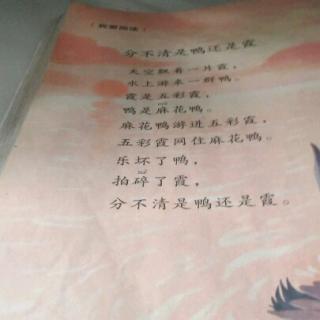 （我爱阅读）
分不清是鸭还是霞
天空飘着一片霞，
水上游来一群鸭。
霞是五彩霞，
鸭是麻花鸭。
麻花鸭游进五彩霞，
五彩霞网住麻花鸭。
乐坏了鸭，
拍碎了霞，
分不清是鸭还是霞。